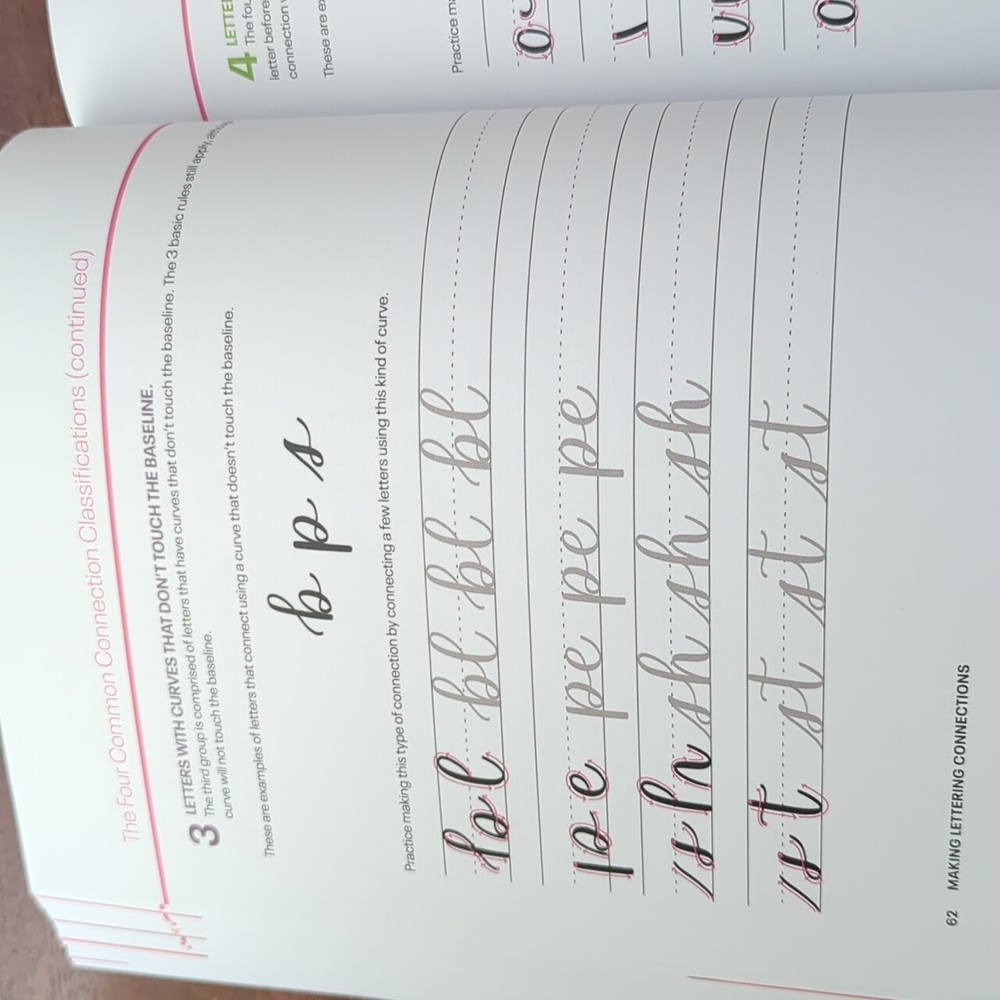 The Four Common Connection Classifications (continued)
3 LETTERS WITH CURVES THAT DON'T TOUCH THE BASELINE.
The third group is comprised of letters that have curves that don't touch the baseline. The 3 basic rules still apply,
curve will not touch the baseline.
These are examples of letters that connect using a curve that doesn't touch the baseline.
b p s
Practice making this type of connection by connecting a few letters using this kind of curve.
bl bl bl bl
pe pe pe pe
sh sh sh sh
st st st st
62 MAKING LETTERING CONNECTIONS
4 LETTE
The fou
letter before
connection
These are e
Practice m